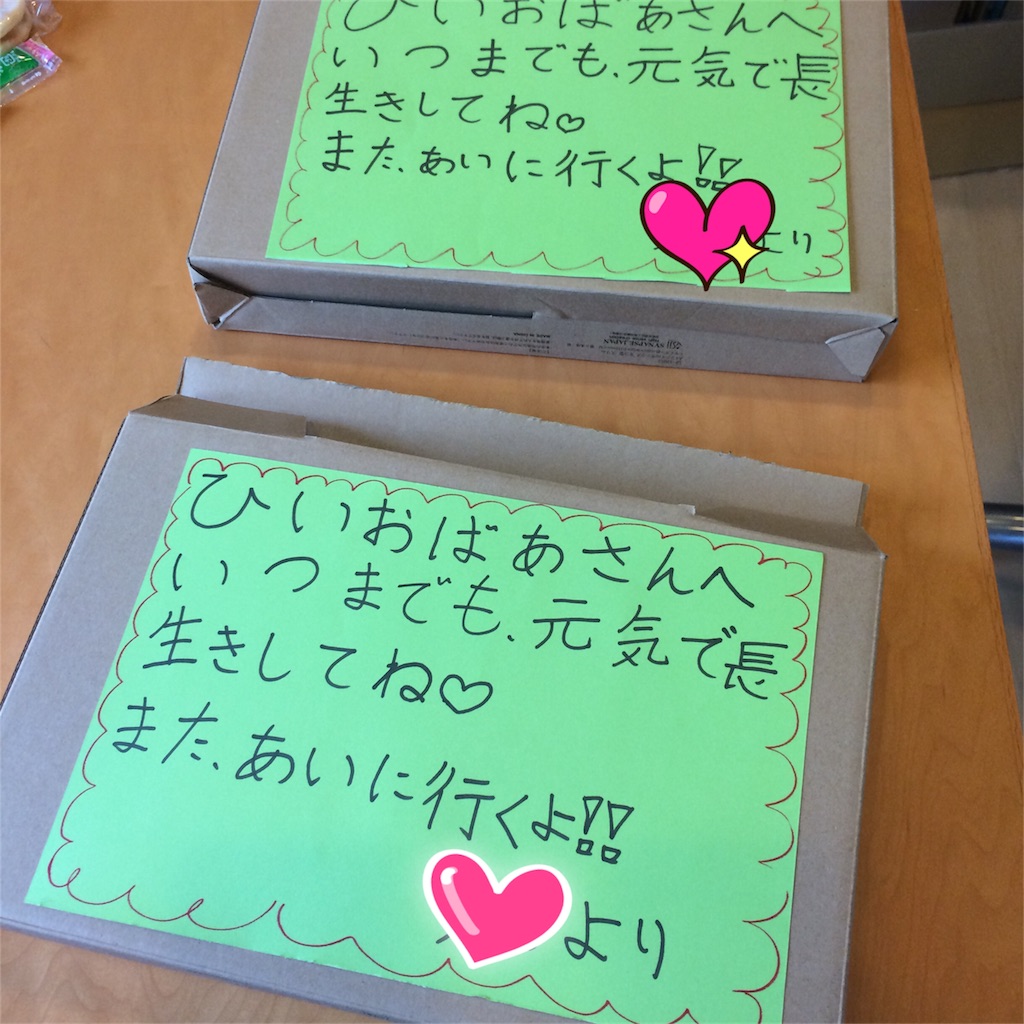 ひいおばあさんへ
いつまでも、元気で長
生きしてね♡
また、あいに行くよ!!
より
SYNAPSE JAPAN
ひいおばあさんへ
いつまでも、元気で長
生きしてね♡
また、あいに行くよ!!
より